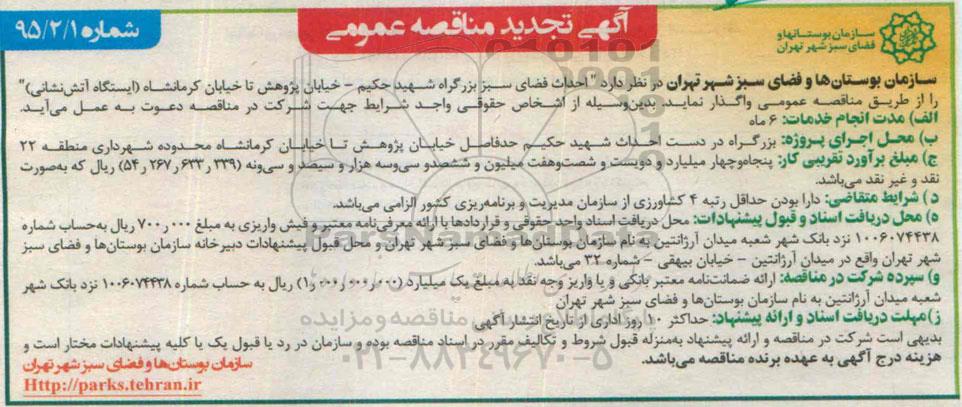 سازمان بوستانها و
فضای سبز شهر تهران
آگهی تجدید مناقصه عمومی
شماره ۹۵/۲/۱
سازمان بوستان‌ها و فضای سبز شهر تهران در نظر دارد "احداث فضای سبز بزرگراه شهید حکیم – خیابان پژوهش تا خیابان کرمانشاه (ایستگاه آتش‌نشانی)"
را از طریق مناقصه عمومی واگذار نماید. بدین‌وسیله از اشخاص حقوقی واجد شرایط جهت شرکت در مناقصه دعوت به عمل می‌آید.
الف) مدت انجام خدمات: ۶ ماه
ب) محل اجرای پروژه: بزرگراه در دست احداث شهید حکیم حدفاصل خیابان پژوهش تا خیابان کرمانشاه محدوده شهرداری منطقه ۲۲
ج) مبلغ برآورد تقریبی کار: پنجاه‌وچهار میلیارد و دویست و شصت‌وهفت میلیون و ششصدو سی‌وسه هزار و سیصد و سی‌ونه (۵۴٫۲۶۷٫۶۳۳٫۳۳۹) ریال که به‌صورت
نقد و غیر نقد می‌باشد.
د) شرایط متقاضی: دارا بودن حداقل رتبه ۴ کشاورزی از سازمان مدیریت و برنامه‌ریزی کشور الزامی می‌باشد.
ه) محل دریافت اسناد و قبول پیشنهادات: محل دریافت اسناد واحد حقوقی و قراردادها با ارائه معرفی‌نامه معتبر و فیش واریزی به مبلغ ۷۰۰٫۰۰۰ ریال به‌حساب شماره
۱۰۰۶۰۷۴۴۳۸ نزد بانک شهر شعبه میدان آرژانتین به نام سازمان بوستان‌ها و فضای سبز شهر تهران و محل قبول پیشنهادات دبیرخانه سازمان بوستان‌ها و فضای سبز
شهر تهران واقع در میدان آرژانتین – خیابان بیهقی – شماره ۳۲ می‌باشد.
و) سپرده شرکت در مناقصه: ارائه ضمانت‌نامه معتبر بانکی و یا واریز وجه نقد به مبلغ یک میلیارد (۱٫۰۰۰٫۰۰۰٫۰۰۰) ریال به حساب شماره ۱۰۰۶۰۷۴۴۳۸ نزد بانک شهر
شعبه میدان آرژانتین به نام سازمان بوستان‌ها و فضای سبز شهر تهران
ز) مهلت دریافت اسناد و ارائه پیشنهاد: حداکثر ۱۰ روز اداری از تاریخ انتشار آگهی
بدیهی است شرکت در مناقصه و ارائه پیشنهاد به‌منزله قبول شروط و تکالیف مقرر در اسناد مناقصه بوده و سازمان در رد یا قبول یک یا کلیه پیشنهادات مختار است و
هزینه درج آگهی به عهده برنده مناقصه می‌باشد.
سازمان بوستان‌ها و فضای سبز شهر تهران
Http://parks.tehran.ir
پایگاه اطلاع رسانی مناقصه و مزایده
۰۲۱-۸۸۳۴۹۶۷۰-۵